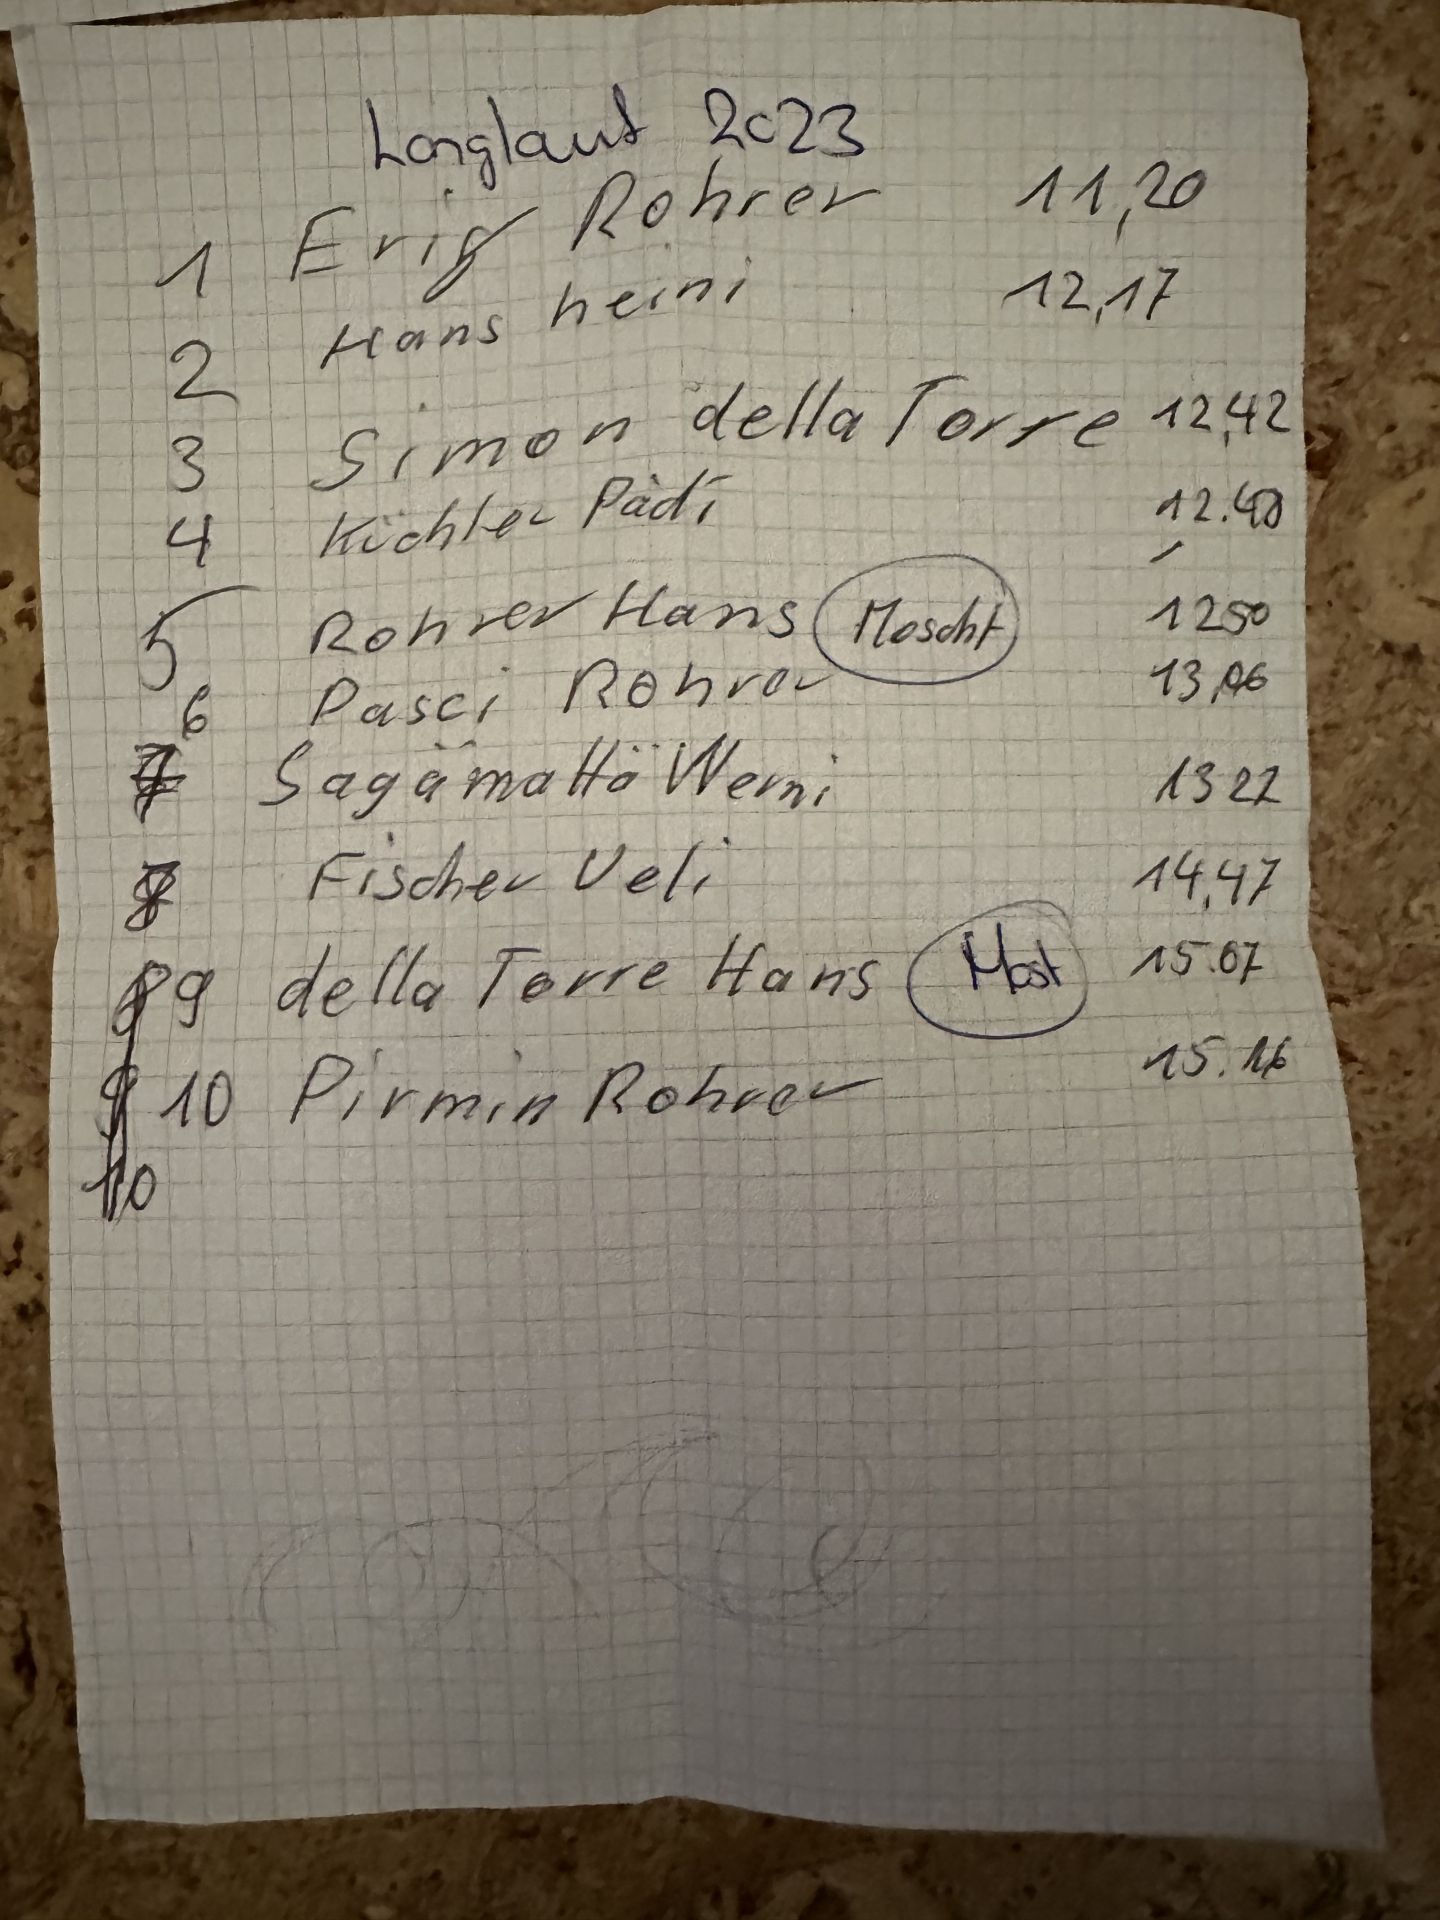 Langlauf 2023
1 Erig Rohrer 11,20
2 Hans heini 12,17
3 Simon della Torre 12,42
4 Küchler Pädi 12.48
5 Rohrer Hans Moscht 1250
6 Pasci Rohrer 13,06
7 Sagämattä Werni 1327
8 Fischer Ueli 14,47
9 della Torre Hans Most 15.07
10 Pirmin Rohrer 15.16
10